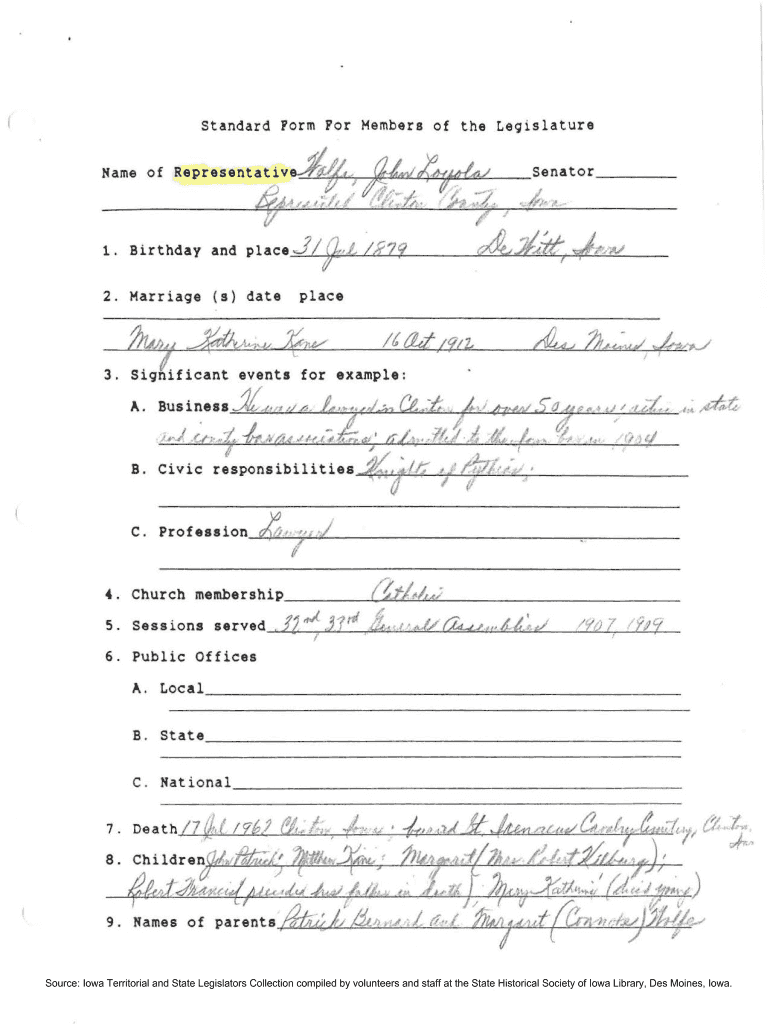 Standard Form For Members of the Legislature
Name of Representative Wolfe, John Loyola Senator
Represented Clinton County, Iowa
1. Birthday and place 31 Jul 1879 De Witt, Iowa
2. Marriage (s) date place
Mary Katherine Kane 16 Oct 1912 Des Moines, Iowa
3. Significant events for example:
A. Business He was a lawyer in Clinton for over 50 years; active in state
and county bar associations; admitted to the Iowa bar in 1904
B. Civic responsibilities Knights of Pythias;
C. Profession Lawyer
4. Church membership Catholic
5. Sessions served 32nd, 33rd General Assemblies 1907, 1909
6. Public Offices
A. Local
B. State
C. National
7. Death 17 Jul 1962 Clinton, Iowa; buried St. Irenaeus Cavalry Cemetery, Clinton,
Iowa
8. Children John Patrick; Matthew Kane; Margaret (Mrs. Robert);
Robert Francis (preceded his father in death) Mary Katherine (died young)
9. Names of parents Patrick Bernard and Margaret Wolfe
Source: Iowa Territorial and State Legislators Collection compiled by volunteers and staff at the State Historical Society of Iowa Library, Des Moines, Iowa.